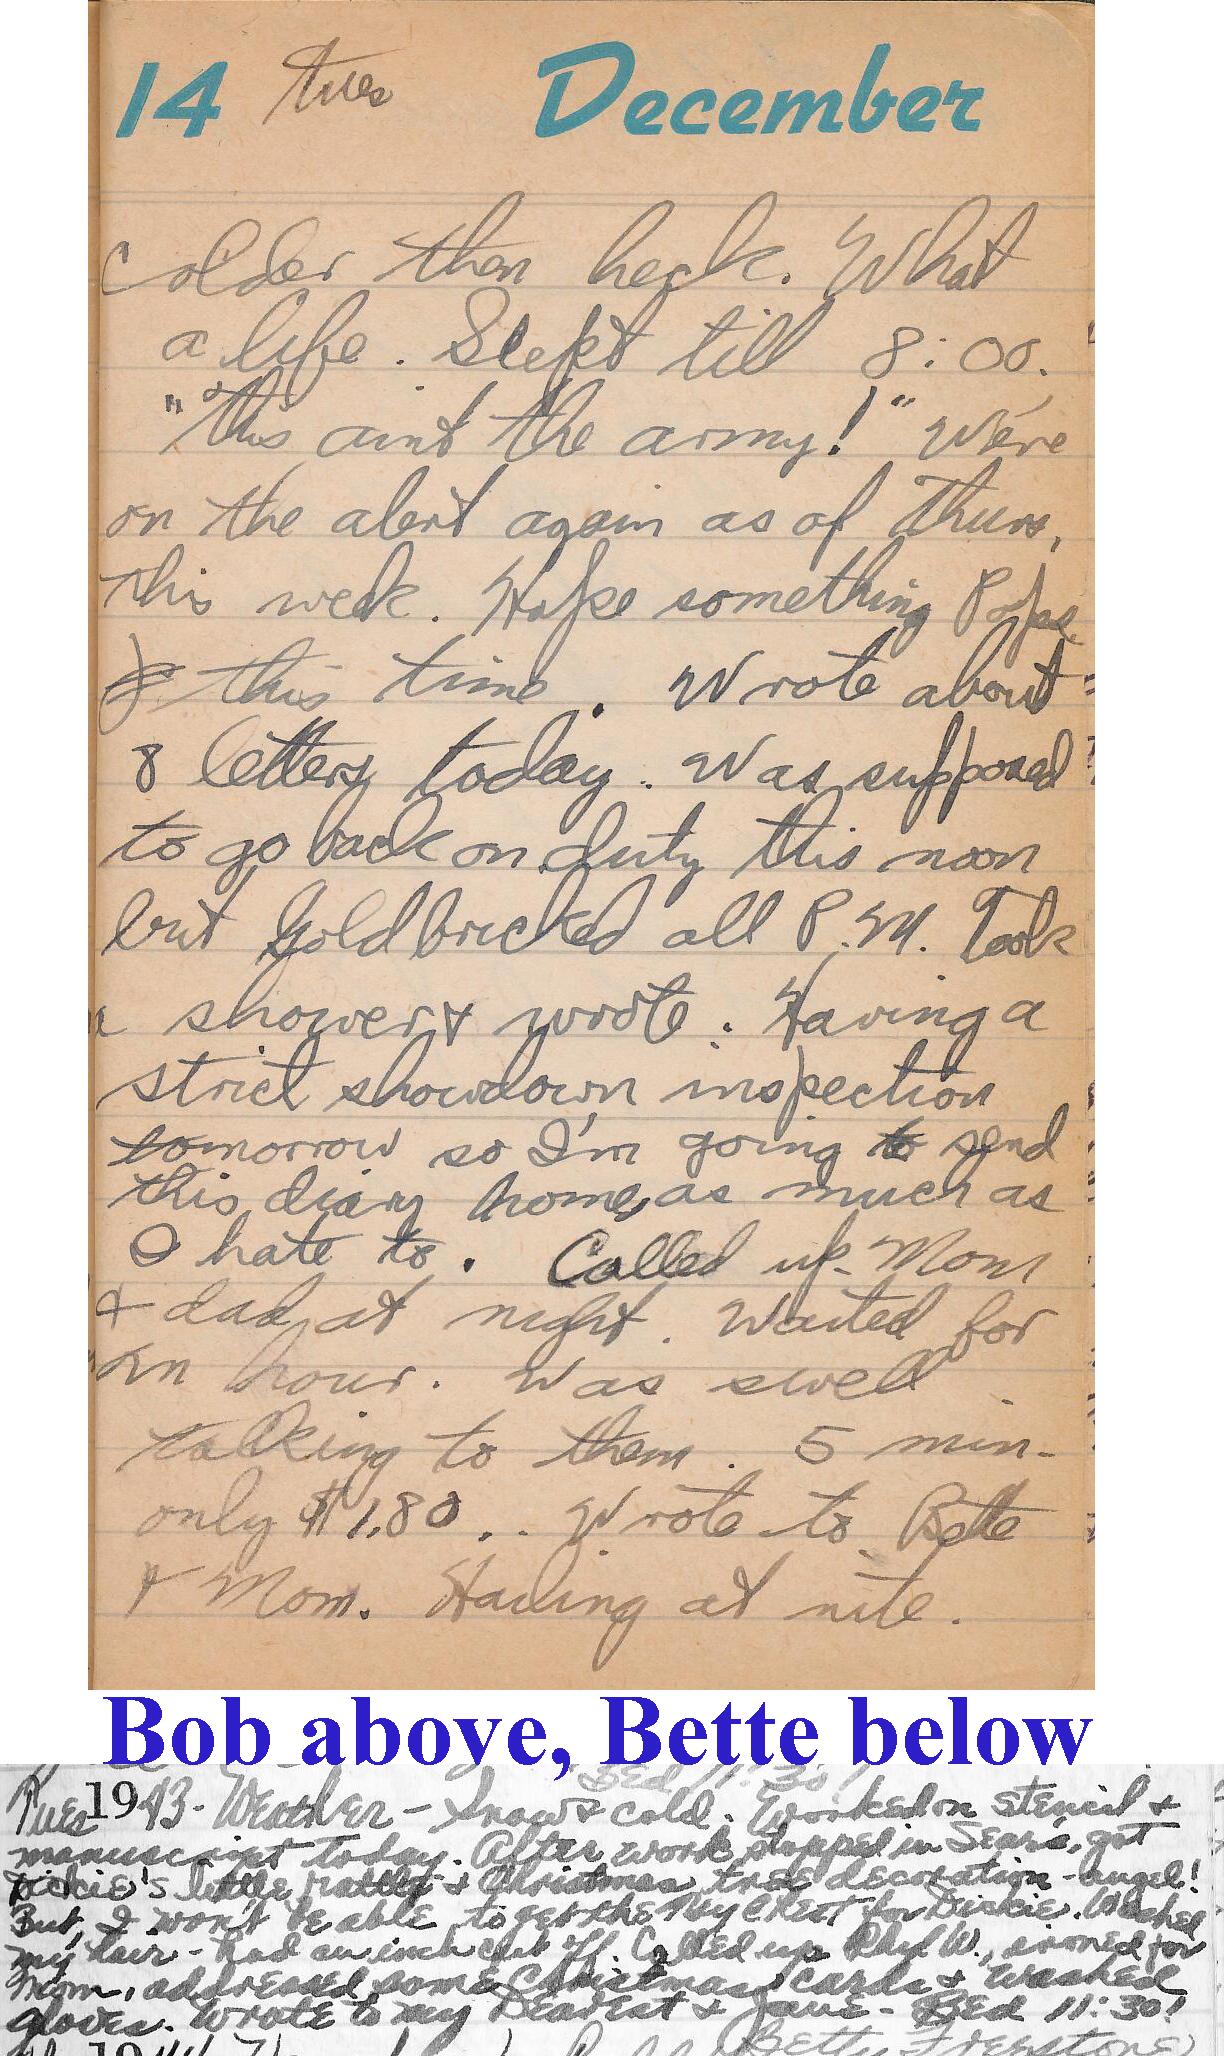 14 Tues December
Colder then heck. What
a life. Slept till 8:00.
"This aint the army!" We're
on the alert again as of Thurs,
this week. Hope something Pops
this time. Wrote about
8 letters today. Was supposed
to go back on duty this noon
but Goldbricked all P.M. Took
a shower & wrote. Having a
strict showdown inspection
tomorrow so I'm going to send
this diary home, as much as
I hate to. Called up Mom
& dad at night. Waited for
an hour. Was swell
talking to them. 5 min-
only $1.80.. Wrote to Bette
& Mom. Hailing at nite.
Bob above, Bette below
Bed 11:30!
Tues 1943- Weather - Snow & cold. Worked on stencil &
manuscript today. After work stopped in Sears, got
Dickie's little rattle & Christmas tree decoration - angel!
But, I won't be able to get the for Dickie. Washed
my hair - had an inch cut off. Called up Phyl W., ironed for
Mom, addressed some Christmas cards & washed
gloves. Wrote to my Dearest & Jane - Bed 11:30!
19 Betty Freestone